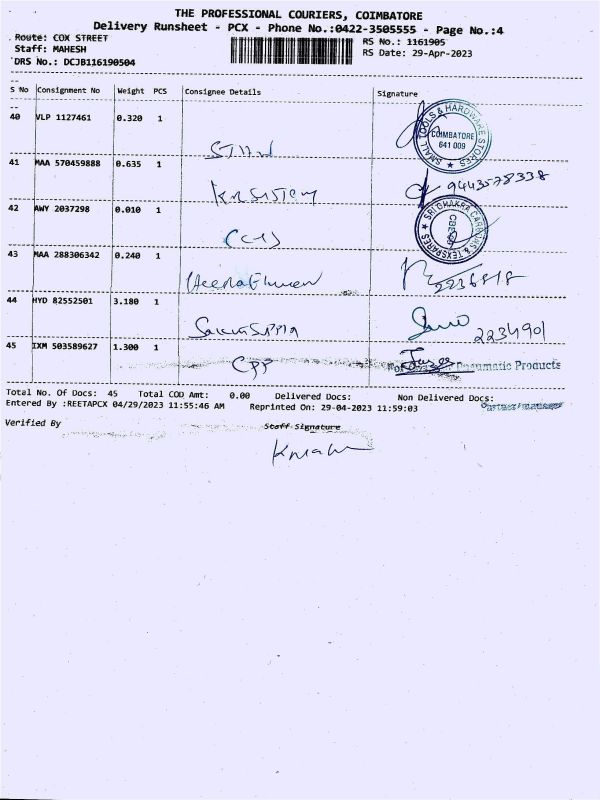 THE PROFESSIONAL COURIERS, COIMBATORE
Delivery Runsheet - PCX - Phone No.:0422-3505555 - Page No.:4
Route: COX STREET
RS No.: 1161905
Staff: MAHESH
RS Date: 29-Apr-2023
DRS No.: DCJB116190504
S No Consignment No Weight PCS Consignee Details Signature
40 VLP 1127461 0.320 1
SMALL TOOLS & HARDWARE STORES
COIMBATORE
641 009
41 MAA 570459888 0.635 1
9443578338
42 AWY 2037298 0.010 1
43 MAA 288306342 0.240 1
2236818
44 HYD 82552501 3.180 1
2234901
45 IXM 503589627 1.300 1
CPP
Pneumatic Products
Total No. Of Docs: 45 Total COD Amt: 0.00 Delivered Docs: Non Delivered Docs:
Entered By :REETAPCX 04/29/2023 11:55:46 AM Reprinted On: 29-04-2023 11:59:03
Partner/manager
Verified By
Staff Signature